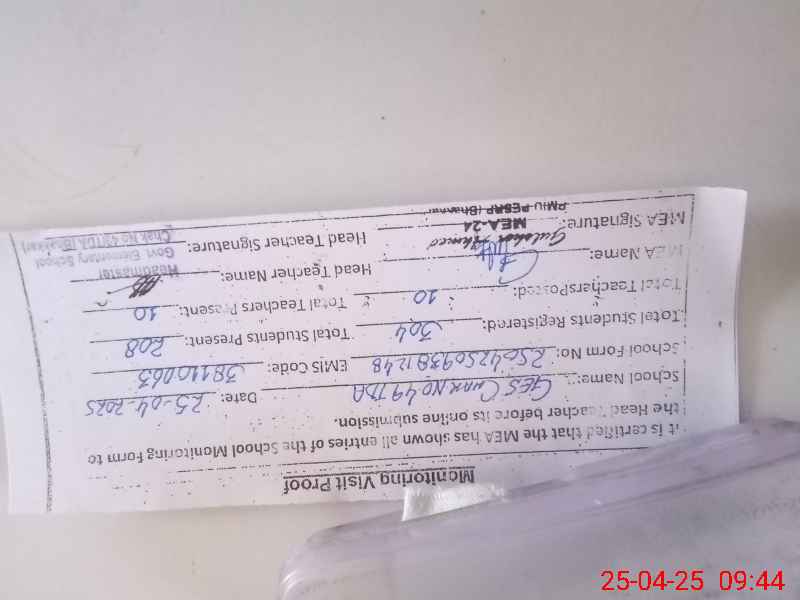 Monitoring Visit Proof
it is certified that the MEA has shown all entries of the School Monitoring Form to
the Head Teacher before its online submission.
School Name: GES Chak No 49 TDA Date: 25-04-2025
School Form No: 25042509381248 EMIS Code: 38110063
Total Students Registered: 304 Total Students Present: 208
Total Teachers Posted: 10 Total Teachers Present: 10
MEA Name: Head Teacher Name:
Headmaster
Govt. Elementary School
Gulshan Ahmed
MEA Signature: MEA-24 Head Teacher Signature: Chak No 49/TDA (Bhakkar)
PMIU PESRP (Bhakkar)
25-04-25 09:44